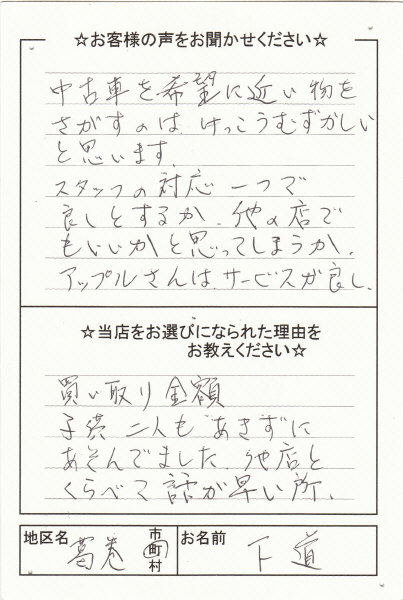 ☆お客様の声をお聞かせください☆
中古車を希望に近い物を
さがすのは、けっこうむずかしい
と思います。
スタッフの対応一つで
良しとするか、他の店で
もいいかと思ってしまうか。
アップルさんは、サービスが良し。
☆当店をお選びになられた理由を
お教えください☆
買い取り金額
子供二人も あきずに
あそんでました。他店と
くらべて 話が早い所。
地区名 葛巻 市町村 お名前 下道